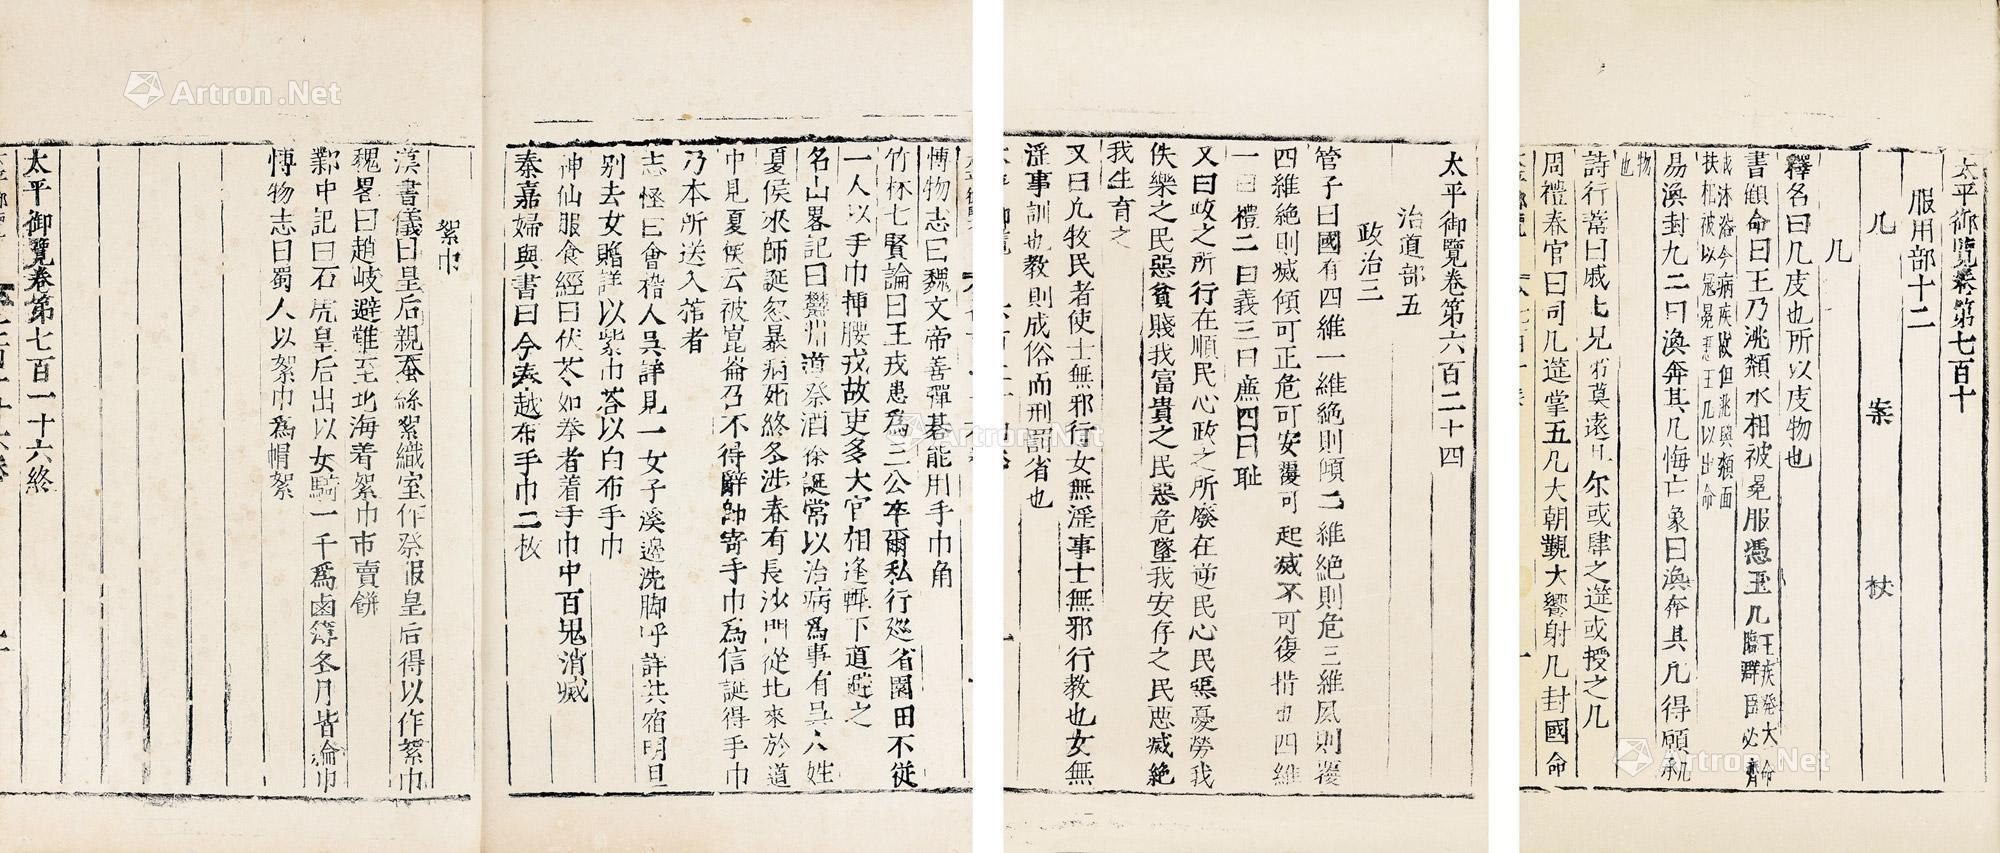 太平御覽卷第七百十
服用部十二
几 案 杖
几
釋名曰几庋也所以庋物也
書顧命曰王乃洮頮水相被冕服憑玉几王疾發大命臨羣臣必齊
戒沐浴今病疾故但洮與頮面扶相被以冠冕憑玉几以出命
易渙封九二曰渙奔其几悔亡象曰渙奔其几得願几承
物也
詩行葦曰戚戚兄弟莫遠具尔或肆之筵或授之几
周禮春官曰司几筵掌五几大朝覲大饗射几封國命
太平御覽卷第六百二十四
治道部五
政治三
管子曰國有四維一維絶則傾二維絶則危三維絶則覆
四維絶則滅傾可正危可安覆可起滅不可復措也四維
一曰禮二曰義三曰廉四曰耻
又曰政之所行在順民心政之所廢在逆民心民惡憂勞我
佚樂之民惡貧賤我富貴之民惡危墜我安存之民惡滅絶
我生育之
又曰凡牧民者使士無邪行女無淫事士無邪行教也女無
淫事訓也教則成俗而刑罰省也
愽物志曰魏文帝善彈碁能用手巾角
竹林七賢論曰王戎患爲三公卒爾私行巡省園田不従
一人以手巾揷腰戎故吏多大官相逢輙下道避之
名山畧記曰欝州道祭酒徐誕常以治病爲事有吳人姓
夏侯來師誕忽暴病死終冬涉春有長沙門從北來於道
中見夏侯云被崑崙召不得辭師寄手巾爲信誕得手巾
乃本所送入棺者
志怪曰會稽人吳詳見一女子溪邊洗脚呼詳共宿明旦
别去女贈詳以紫巾荅以白布手巾
神仙服食經曰伏苓如拳者着手巾中百鬼消滅
秦嘉婦與書曰今奉越布手巾二枚
絮巾
漢書儀曰皇后親蚕絲絮織室作祭服皇后得以作絮巾
魏畧曰趙岐避難至北海着絮巾市賣餅
鄴中記曰石虎皇后出以女騎一千爲鹵簿冬月皆綸巾
愽物志曰蜀人以絮巾爲帽絮
太平御覽卷第七百一十六終
Artron.Net
Artron.Net